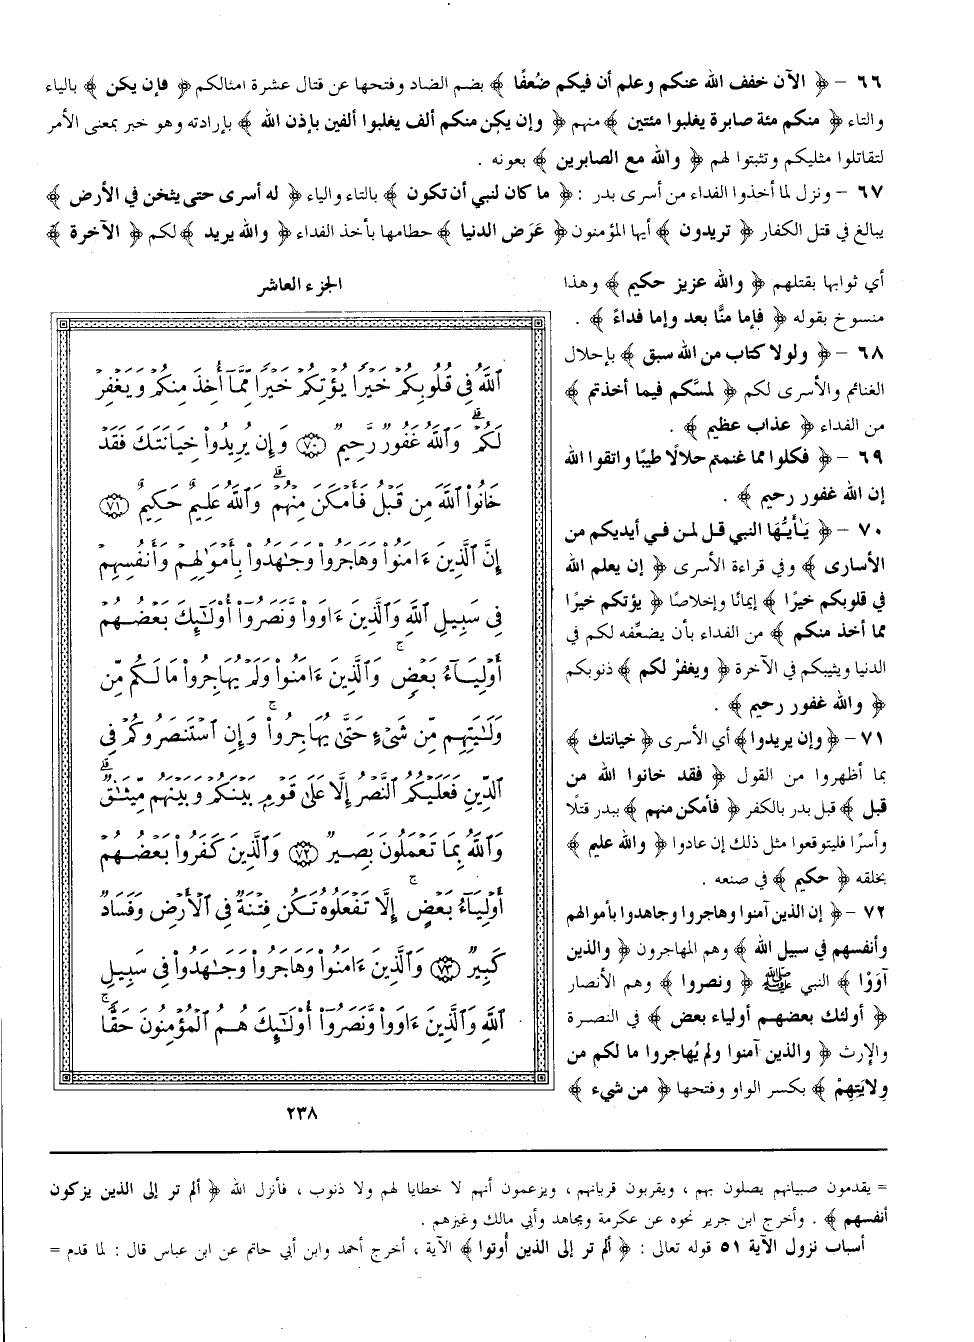 ٦٦ – ﴿ الآن خفف الله عنكم وعلم أن فيكم ضُعفًا ﴾ بضم الضاد وفتحها عن قتال عشرة امثالكم ﴿ فإن يكن ﴾ بالياء
والتاء ﴿ منكم مئة صابرة يغلبوا مئتين ﴾ منهم ﴿ وإن يكن منكم ألف يغلبوا ألفين بإذن الله ﴾ بإرادته وهو خبر بمعنى الأمر
لتقاتلوا مثليكم وتثبتوا لهم ﴿ والله مع الصابرين ﴾ بعونه .
٦٧ – ونزل لما أخذوا الفداء من أسرى بدر : ﴿ ما كان لنبي أن تكون ﴾ بالتاء والياء ﴿ له أسرى حتى يثخن في الأرض ﴾
يبالغ في قتل الكفار ﴿ تريدون ﴾ أيها المؤمنون ﴿ عَرَض الدنيا ﴾ حطامها بأخذ الفداء ﴿ والله يريد ﴾ لكم ﴿ الآخرة ﴾
أي ثوابها بقتلهم ﴿ والله عزيز حكيم ﴾ وهذا
منسوخ بقوله ﴿ فإما منًّا بعد وإما فداءً ﴾ .
٦٨ – ﴿ ولولا كتاب من الله سبق ﴾ بإحلال
الغنائم والأسرى لكم ﴿ لمسَّكم فيما أخذتم ﴾
من الفداء ﴿ عذاب عظيم ﴾ .
٦٩ – ﴿ فكلوا مما غنمتم حلالًا طيبًا واتقوا الله
إن الله غفور رحيم ﴾ .
٧٠ – ﴿ يَٰأَيُّهَا النبي قل لمن في أيديكم من
الأسارى ﴾ وفي قراءة الأسرى ﴿ إن يعلم الله
في قلوبكم خيرًا ﴾ إيمانًا وإخلاصًا ﴿ يؤتكم خيرًا
مما أخذ منكم ﴾ من الفداء بأن يضعِّفه لكم في
الدنيا ويثيبكم في الآخرة ﴿ ويغفرْ لكم ﴾ ذنوبكم
﴿ والله غفور رحيم ﴾ .
٧١ – ﴿ وإن يريدوا ﴾ أي الأسرى ﴿ خيانتك ﴾
بما أظهروا من القول ﴿ فقد خانوا الله من
قبل ﴾ قبل بدر بالكفر ﴿ فأمكن منهم ﴾ ببدر قتلًا
وأسرًا فليتوقعوا مثل ذلك إن عادوا ﴿ والله عليم ﴾
بخلقه ﴿ حكيم ﴾ في صنعه .
٧٢ – ﴿ إن الذين آمنوا وهاجروا وجاهدوا بأموالهم
وأنفسهم في سبيل الله ﴾ وهم المهاجرون ﴿ والذين
آوَوْا ﴾ النبي ﷺ ﴿ ونصروا ﴾ وهم الأنصار
﴿ أولئك بعضهم أولياء بعض ﴾ في النصرة
والإرث ﴿ والذين آمنوا ولم يُهاجروا ما لكم من
وِلايَتِهِمْ ﴾ بكسر الواو وفتحها ﴿ من شيء ﴾
الجزء العاشر
ٱللَّهُ فِى قُلُوبِكُمْ خَيْرًا يُؤْتِكُمْ خَيْرًا مِّمَّآ أُخِذَ مِنكُمْ وَيَغْفِرْ
لَكُمْ ۗ وَٱللَّهُ غَفُورٌ رَّحِيمٌ ﴿٧٠﴾ وَإِن يُرِيدُوا۟ خِيَانَتَكَ فَقَدْ
خَانُوا۟ ٱللَّهَ مِن قَبْلُ فَأَمْكَنَ مِنْهُمْ ۗ وَٱللَّهُ عَلِيمٌ حَكِيمٌ ﴿٧١﴾
إِنَّ ٱلَّذِينَ ءَامَنُوا۟ وَهَاجَرُوا۟ وَجَٰهَدُوا۟ بِأَمْوَٰلِهِمْ وَأَنفُسِهِمْ
فِى سَبِيلِ ٱللَّهِ وَٱلَّذِينَ ءَاوَوا۟ وَّنَصَرُوٓا۟ أُو۟لَٰٓئِكَ بَعْضُهُمْ
أَوْلِيَآءُ بَعْضٍ ۚ وَٱلَّذِينَ ءَامَنُوا۟ وَلَمْ يُهَاجِرُوا۟ مَا لَكُم مِّن
وَلَٰيَتِهِم مِّن شَىْءٍ حَتَّىٰ يُهَاجِرُوا۟ ۚ وَإِنِ ٱسْتَنصَرُوكُمْ فِى
ٱلدِّينِ فَعَلَيْكُمُ ٱلنَّصْرُ إِلَّا عَلَىٰ قَوْمٍۭ بَيْنَكُمْ وَبَيْنَهُم مِّيثَٰقٌ ۗ
وَٱللَّهُ بِمَا تَعْمَلُونَ بَصِيرٌ ﴿٧٢﴾ وَٱلَّذِينَ كَفَرُوا۟ بَعْضُهُمْ
أَوْلِيَآءُ بَعْضٍ ۚ إِلَّا تَفْعَلُوهُ تَكُن فِتْنَةٌ فِى ٱلْأَرْضِ وَفَسَادٌ
كَبِيرٌ ﴿٧٣﴾ وَٱلَّذِينَ ءَامَنُوا۟ وَهَاجَرُوا۟ وَجَٰهَدُوا۟ فِى سَبِيلِ
ٱللَّهِ وَٱلَّذِينَ ءَاوَوا۟ وَّنَصَرُوٓا۟ أُو۟لَٰٓئِكَ هُمُ ٱلْمُؤْمِنُونَ حَقًّا ۚ
٢٣٨
= يقدمون صبيانهم يصلون بهم ، ويقربون قربانهم ، ويزعمون أنهم لا خطايا لهم ولا ذنوب ، فأنزل الله ﴿ ألم تر إلى الذين يزكون
أنفسهم ﴾ . وأخرج ابن جرير نحوه عن عكرمة ومجاهد وأبي مالك وغيرهم .
أسباب نزول الآية ٥١ قوله تعالى : ﴿ ألم تر إلى الذين أُوتوا ﴾ الآية ، أخرج أحمد وابن أبي حاتم عن ابن عباس قال : لما قدم =